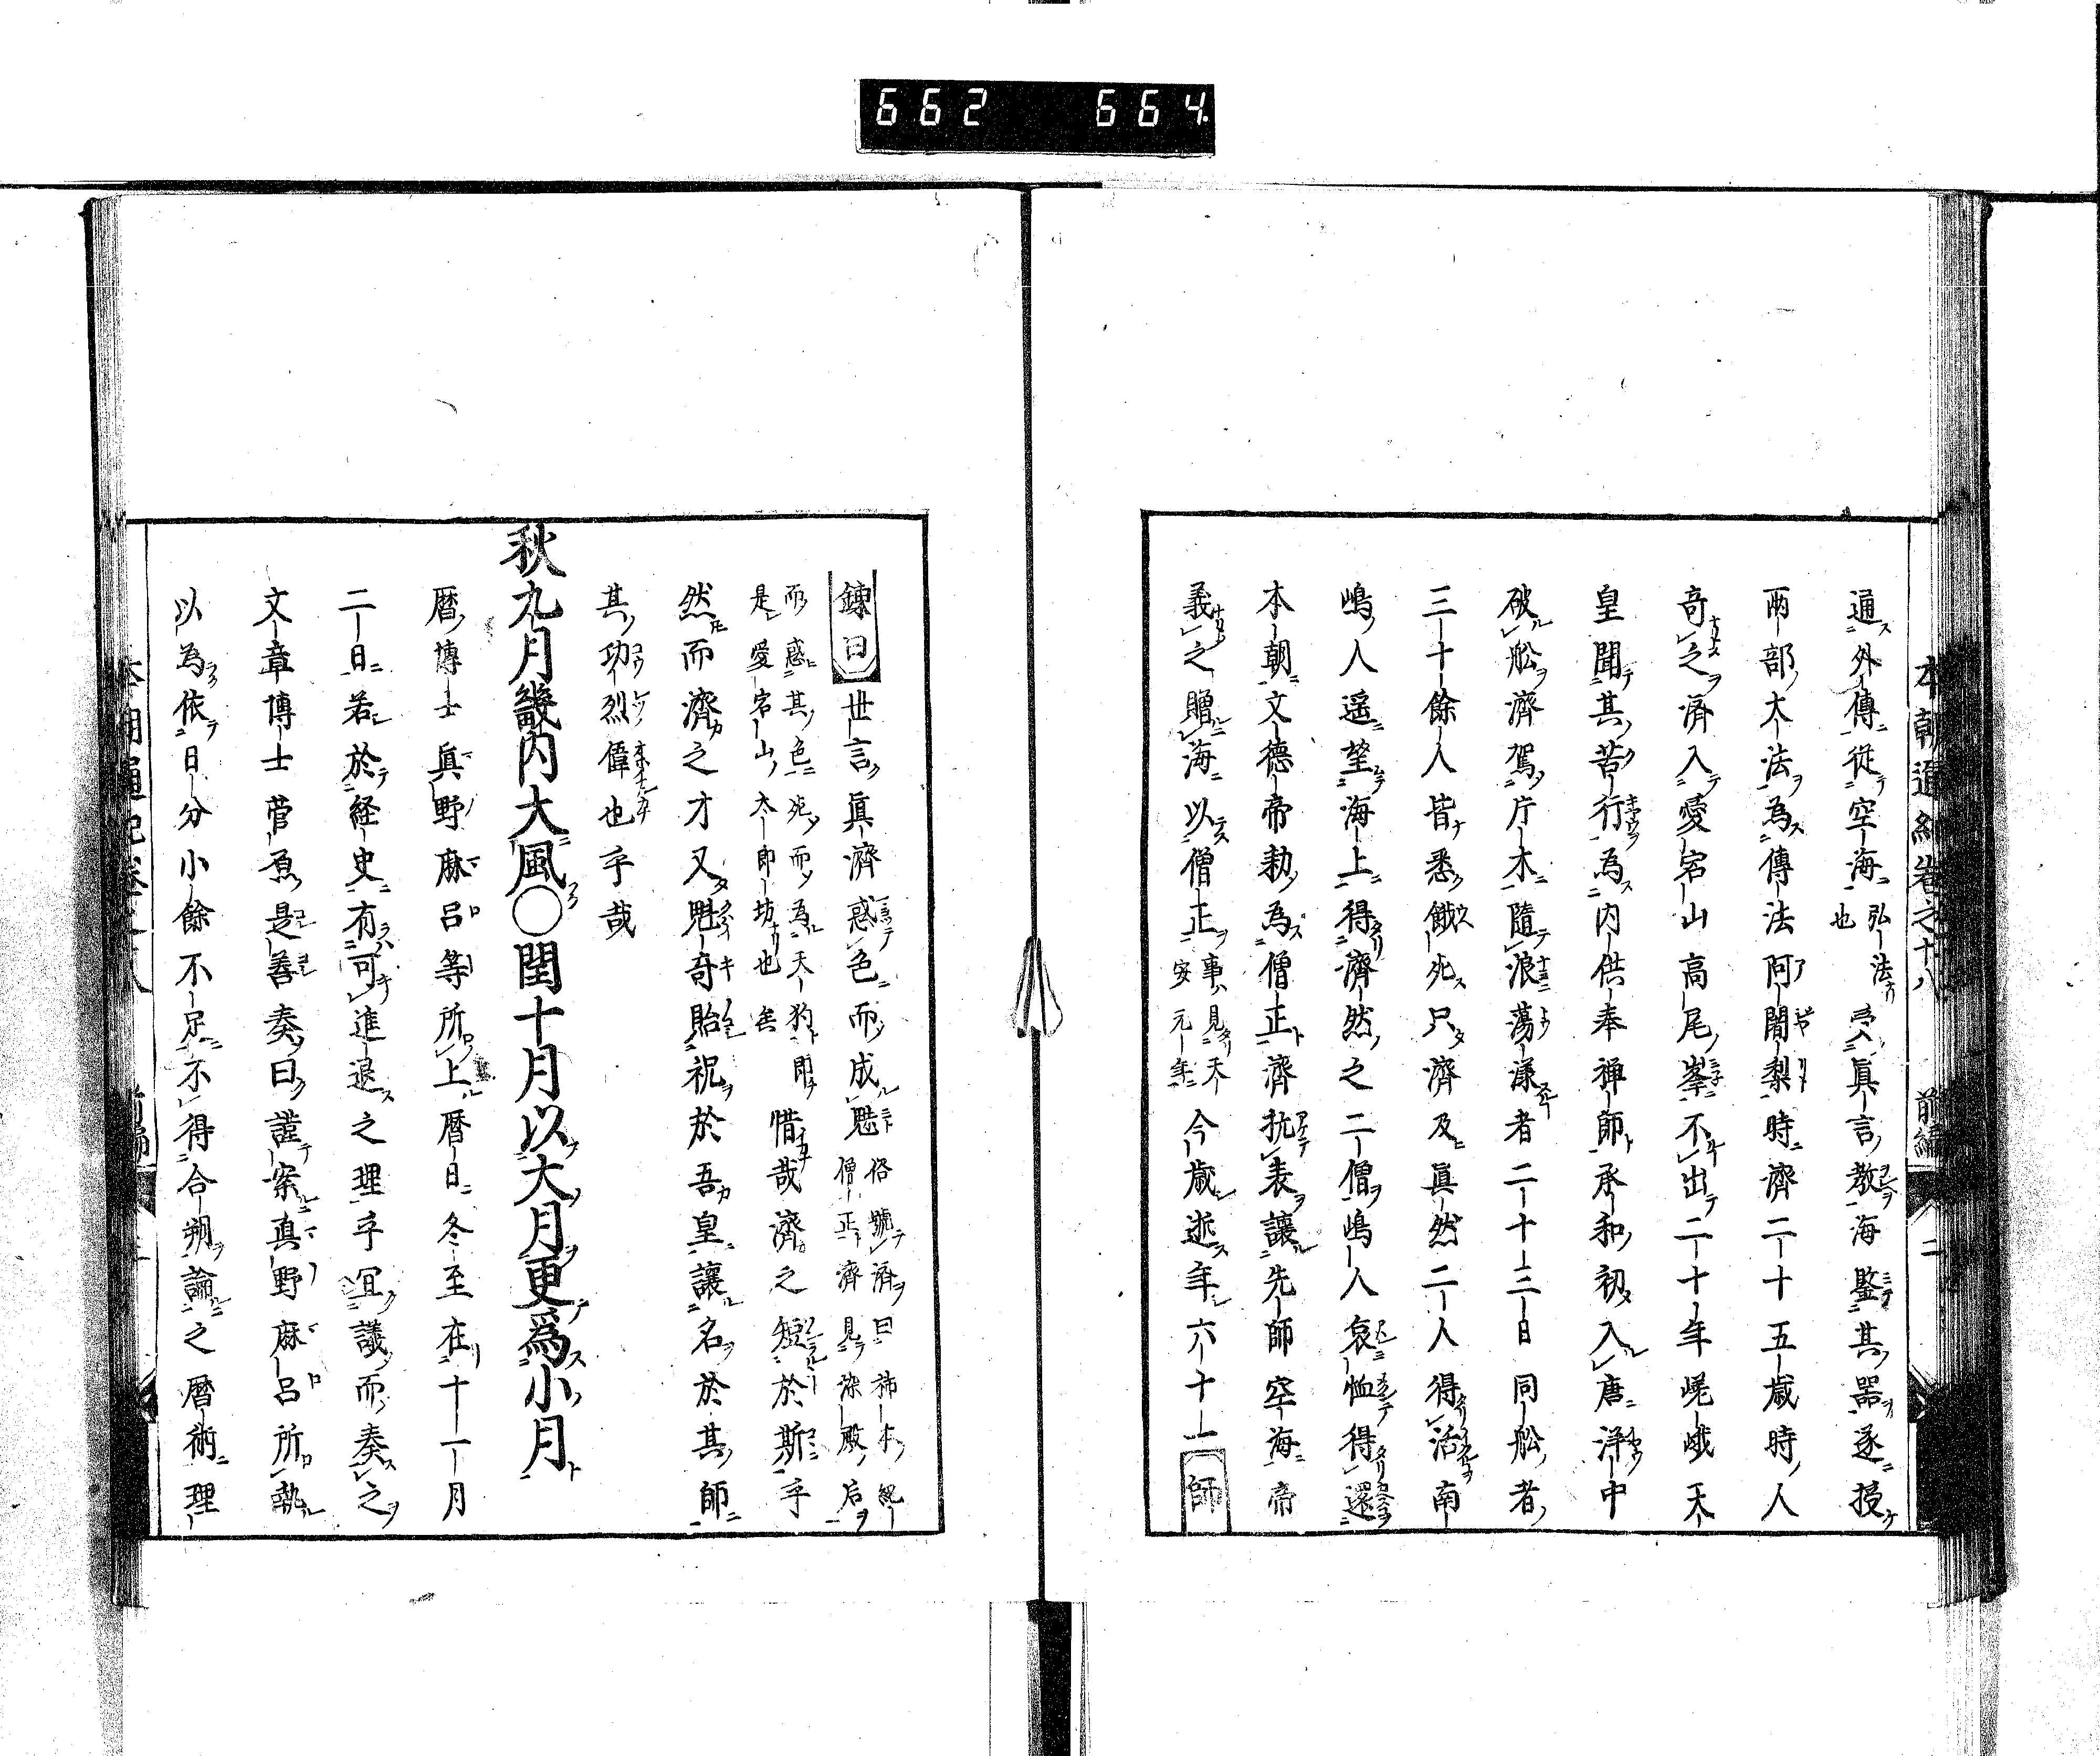 662 664
本朝通紀卷之十八 前編 二
通外傳從空海弘法也眞言教海鑒其器逐授
兩部大法為傳法阿闍梨時濟二十五歳時人
奇之濟入愛宕山高尾峯不出二十年嵯峨天
皇聞其苦行為内供奉禅師承和初入唐洋中
破舩濟駕片木隨浪蕩漾者二十三日同舩者
三十餘人皆悉餓死只濟及眞然二人得活南
嶋人遥望海上得濟然之二僧嶋人哀恤得還
本朝文德帝勅為僧正濟抗表讓先師空海帝
義之贈海以僧正事見天安元年今歳逝年六十一師
錬曰世言眞濟惑色而成魅俗號濟曰柿本紀僧正濟見染殿后
而惑其色死而為天狗即是愛宕山太郎坊也矣惜哉濟之短於斯乎
然而濟之才又魁奇貽祝於吾皇讓名於其師
其功烈偉也乎哉
秋九月畿内大風〇閏十月以大月更爲小月
暦博士眞野麻呂等所上暦日冬至在十一月
二日若於経史有可進退之理乎冝議而奏之
文章博士菅原是善奏曰謹案真野麻呂所執
以為依日分小餘不足不得合朔論之暦術理
本朝通紀卷之十八 前編